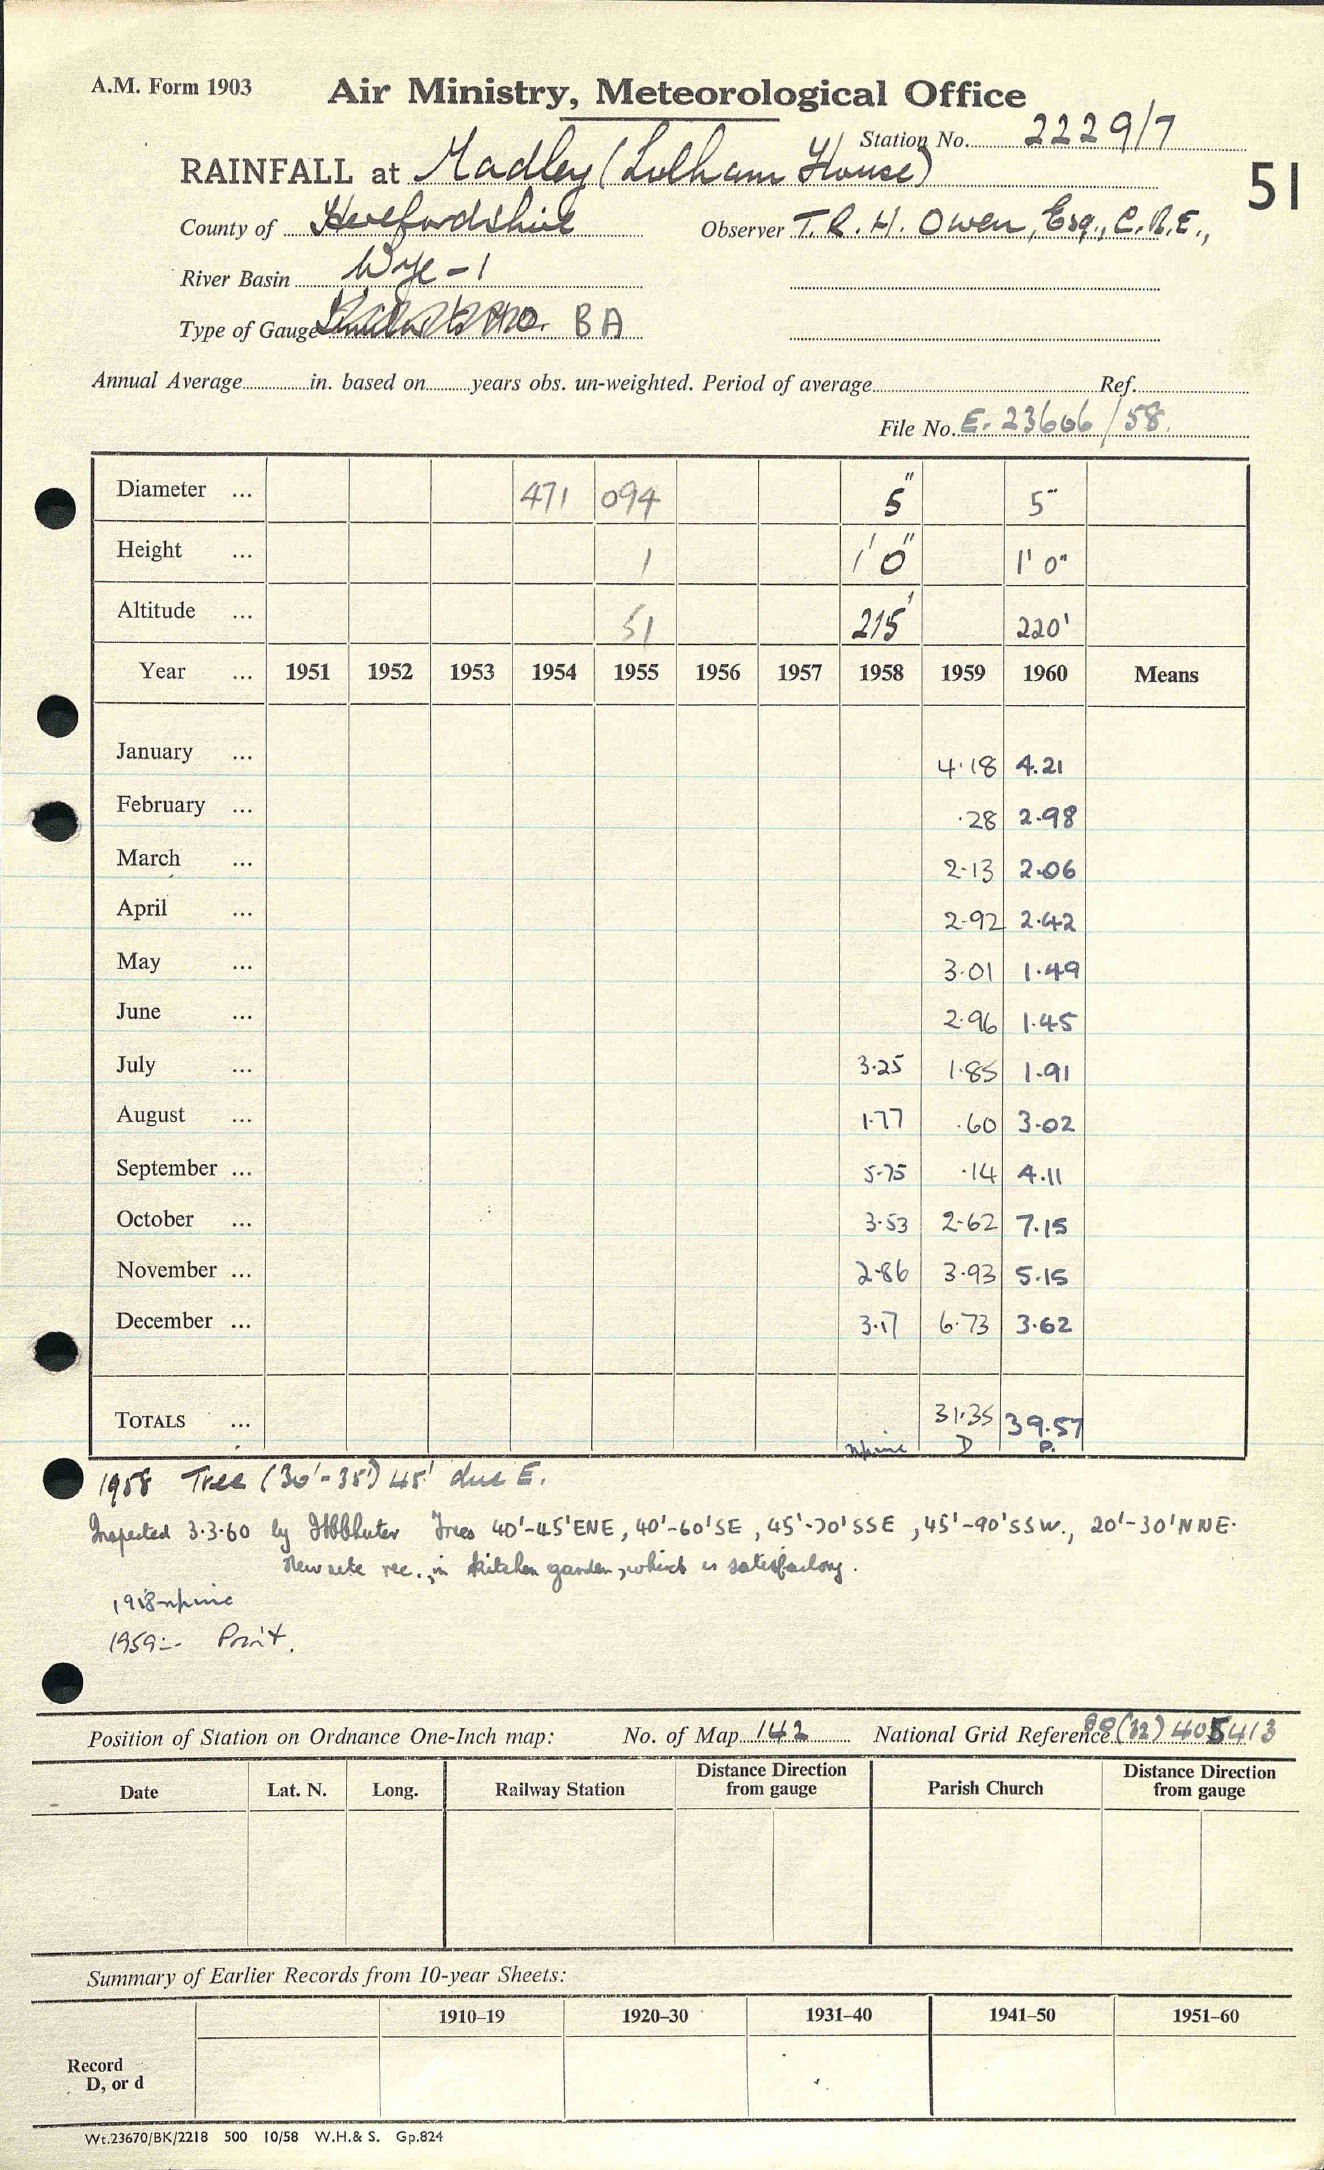 A.M. Form 1903
Air Ministry, Meteorological Office
Station No. 2229/7
RAINFALL at Madley (Lulham House)
51
County of Herefordshire Observer T. R. H. Owen, Esq., C.B.E.,
River Basin Wye - 1
Type of Gauge BA
Annual Average in. based on years obs. un-weighted. Period of average Ref.
File No. E. 23606/58.
Diameter ... 471 094 5" 5"
Height ... 1 1' 0" 1' 0"
Altitude ... 51 215' 220'
Year ... 1951 1952 1953 1954 1955 1956 1957 1958 1959 1960 Means
January ... 4.18 4.21
February ... .28 2.98
March ... 2.13 2.06
April ... 2.92 2.42
May ... 3.01 1.49
June ... 2.96 1.45
July ... 3.25 1.85 1.91
August ... 1.77 .60 3.02
September ... 5.75 .14 4.11
October ... 3.53 2.62 7.15
November ... 2.86 3.93 5.15
December ... 3.17 6.73 3.62
TOTALS ... 31.35 39.57
D P.
1958 Tree (30'-35') 45' due E.
Inspected 3.3.60 by Trees 40'-45' ENE, 40'-60' SE, 45'-70' SSE, 45'-90' SSW., 20'-30' NNE.
New site rec., in kitchen garden, which is satisfactory.
1958
1959:- Print.
Position of Station on Ordnance One-Inch map: No. of Map 142 National Grid Reference (32) 405413
Date Lat. N. Long. Railway Station Distance Direction from gauge Parish Church Distance Direction from gauge
Summary of Earlier Records from 10-year Sheets:
1910–19 1920–30 1931–40 1941–50 1951–60
Record
D, or d
Wt.23670/BK/2218 500 10/58 W.H.& S. Gp.824